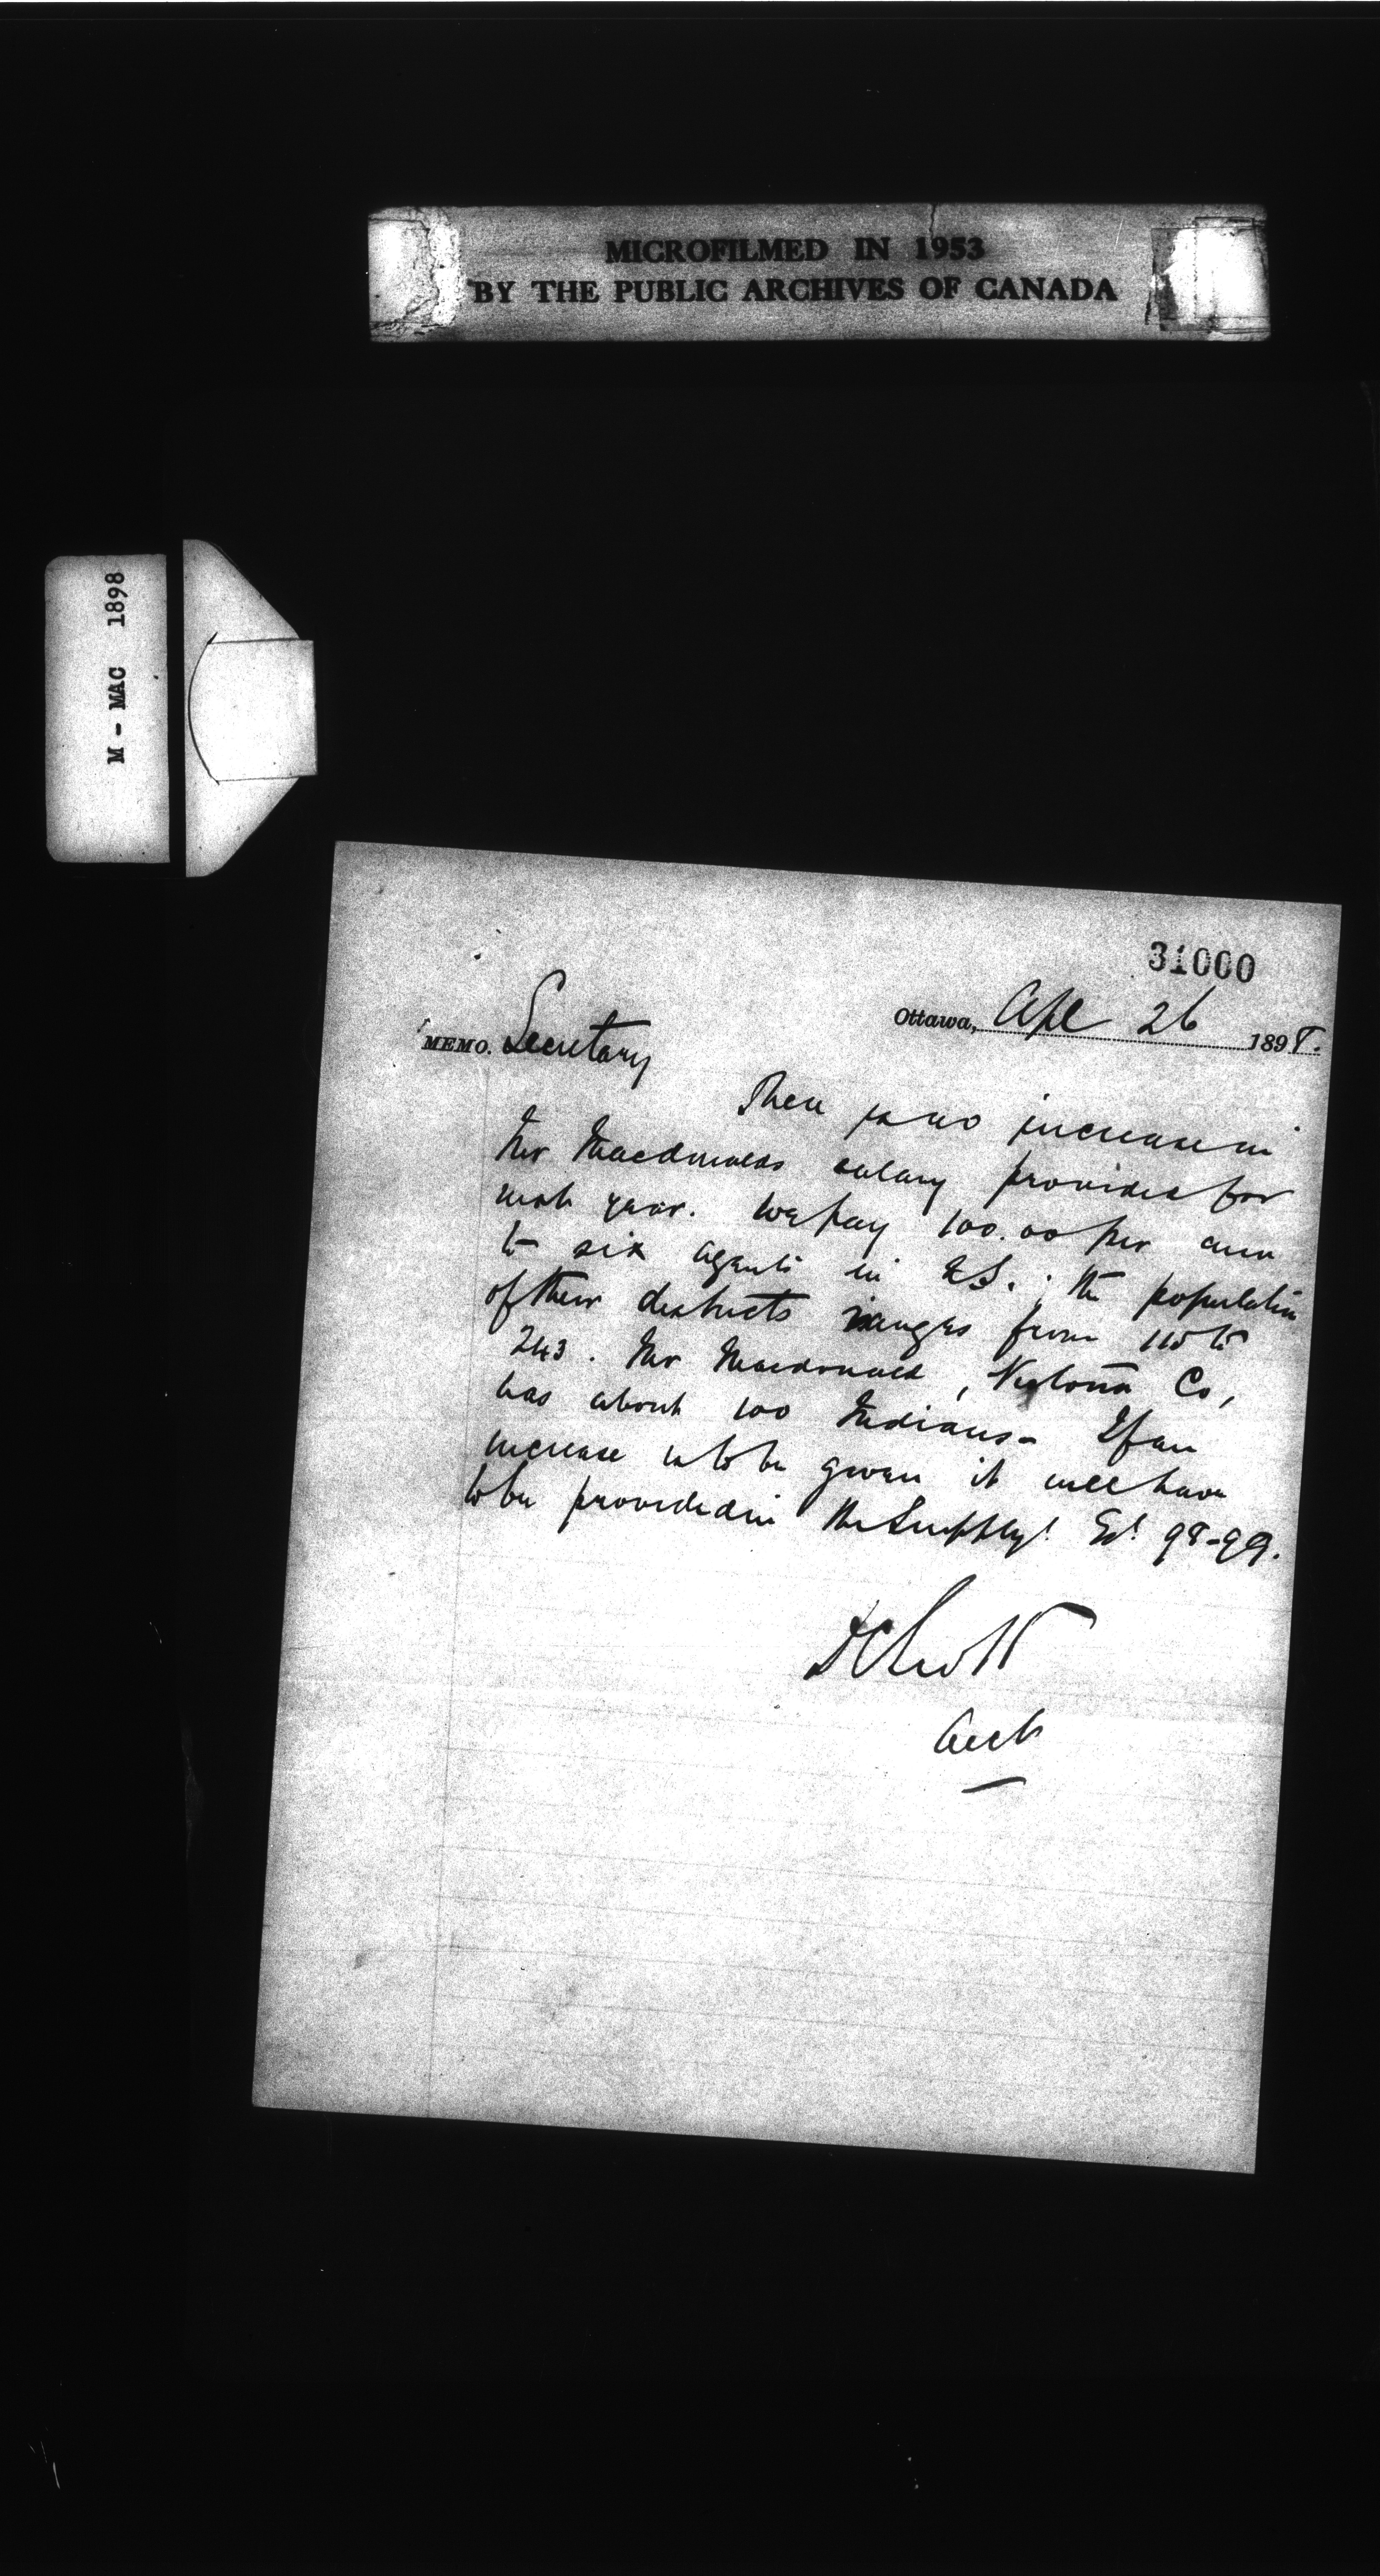 MICROFILMED IN 1953
BY THE PUBLIC ARCHIVES OF CANADA
M - MAC 1898
31000
Ottawa, Apl 26 1898.
MEMO. Secretary
There is no increase in
Mr Macdonalds salary provided for
next year. We pay 100.00 per ann
to six agents in N.S.; the population
of their districts ranges from 115 to
243. Mr Macdonald, Victoria Co,
has about 100 Indians - If an
increase is to be given it will have
to be provided in the Supply! Est 98-99.
D C Scott
Acct